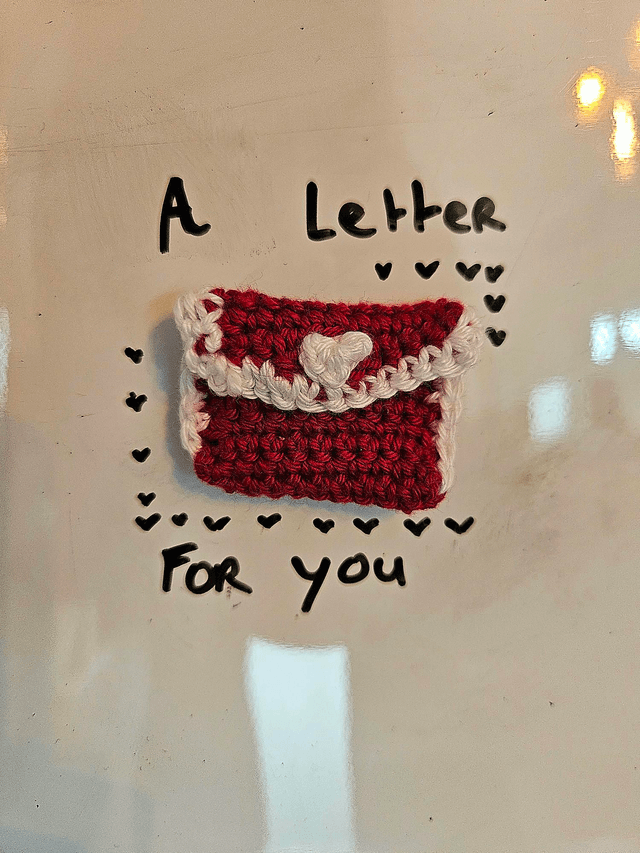 A Letter
For you